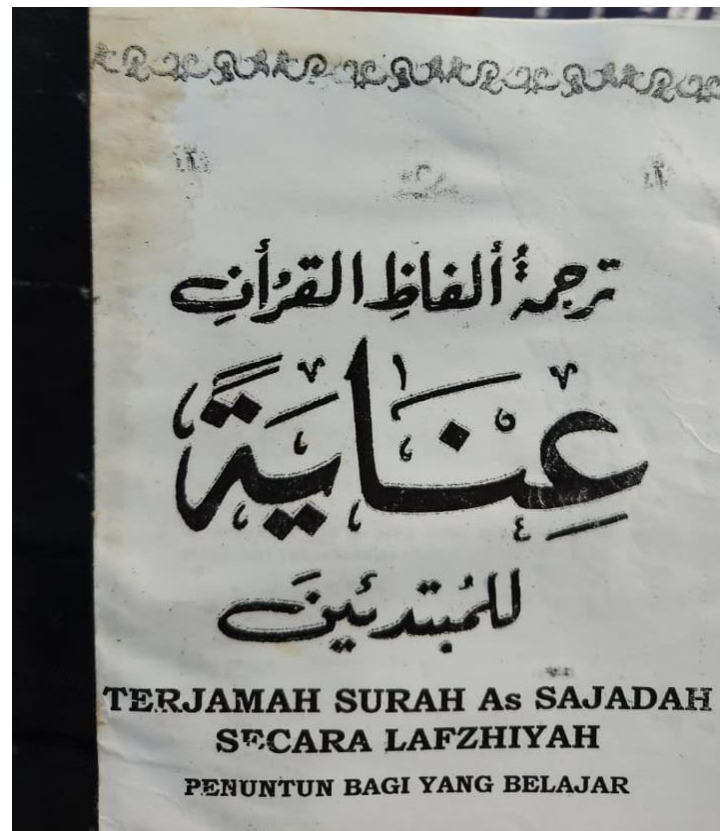 ترجمةُ ألفاظِ القرُأنِ
عِنَايَةً
للمُبتدئينَ
TERJAMAH SURAH As SAJADAH
SECARA LAFZHIYAH
PENUNTUN BAGI YANG BELAJAR